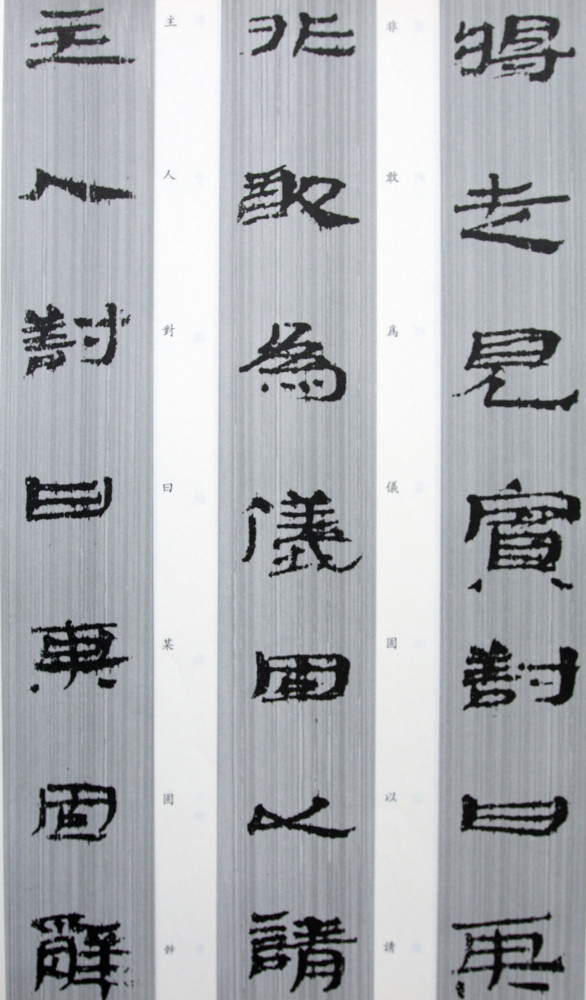 將走見賓對曰某
非敢爲儀固以請
非敢為儀固以請
主人對曰某固
主人對曰某固辭